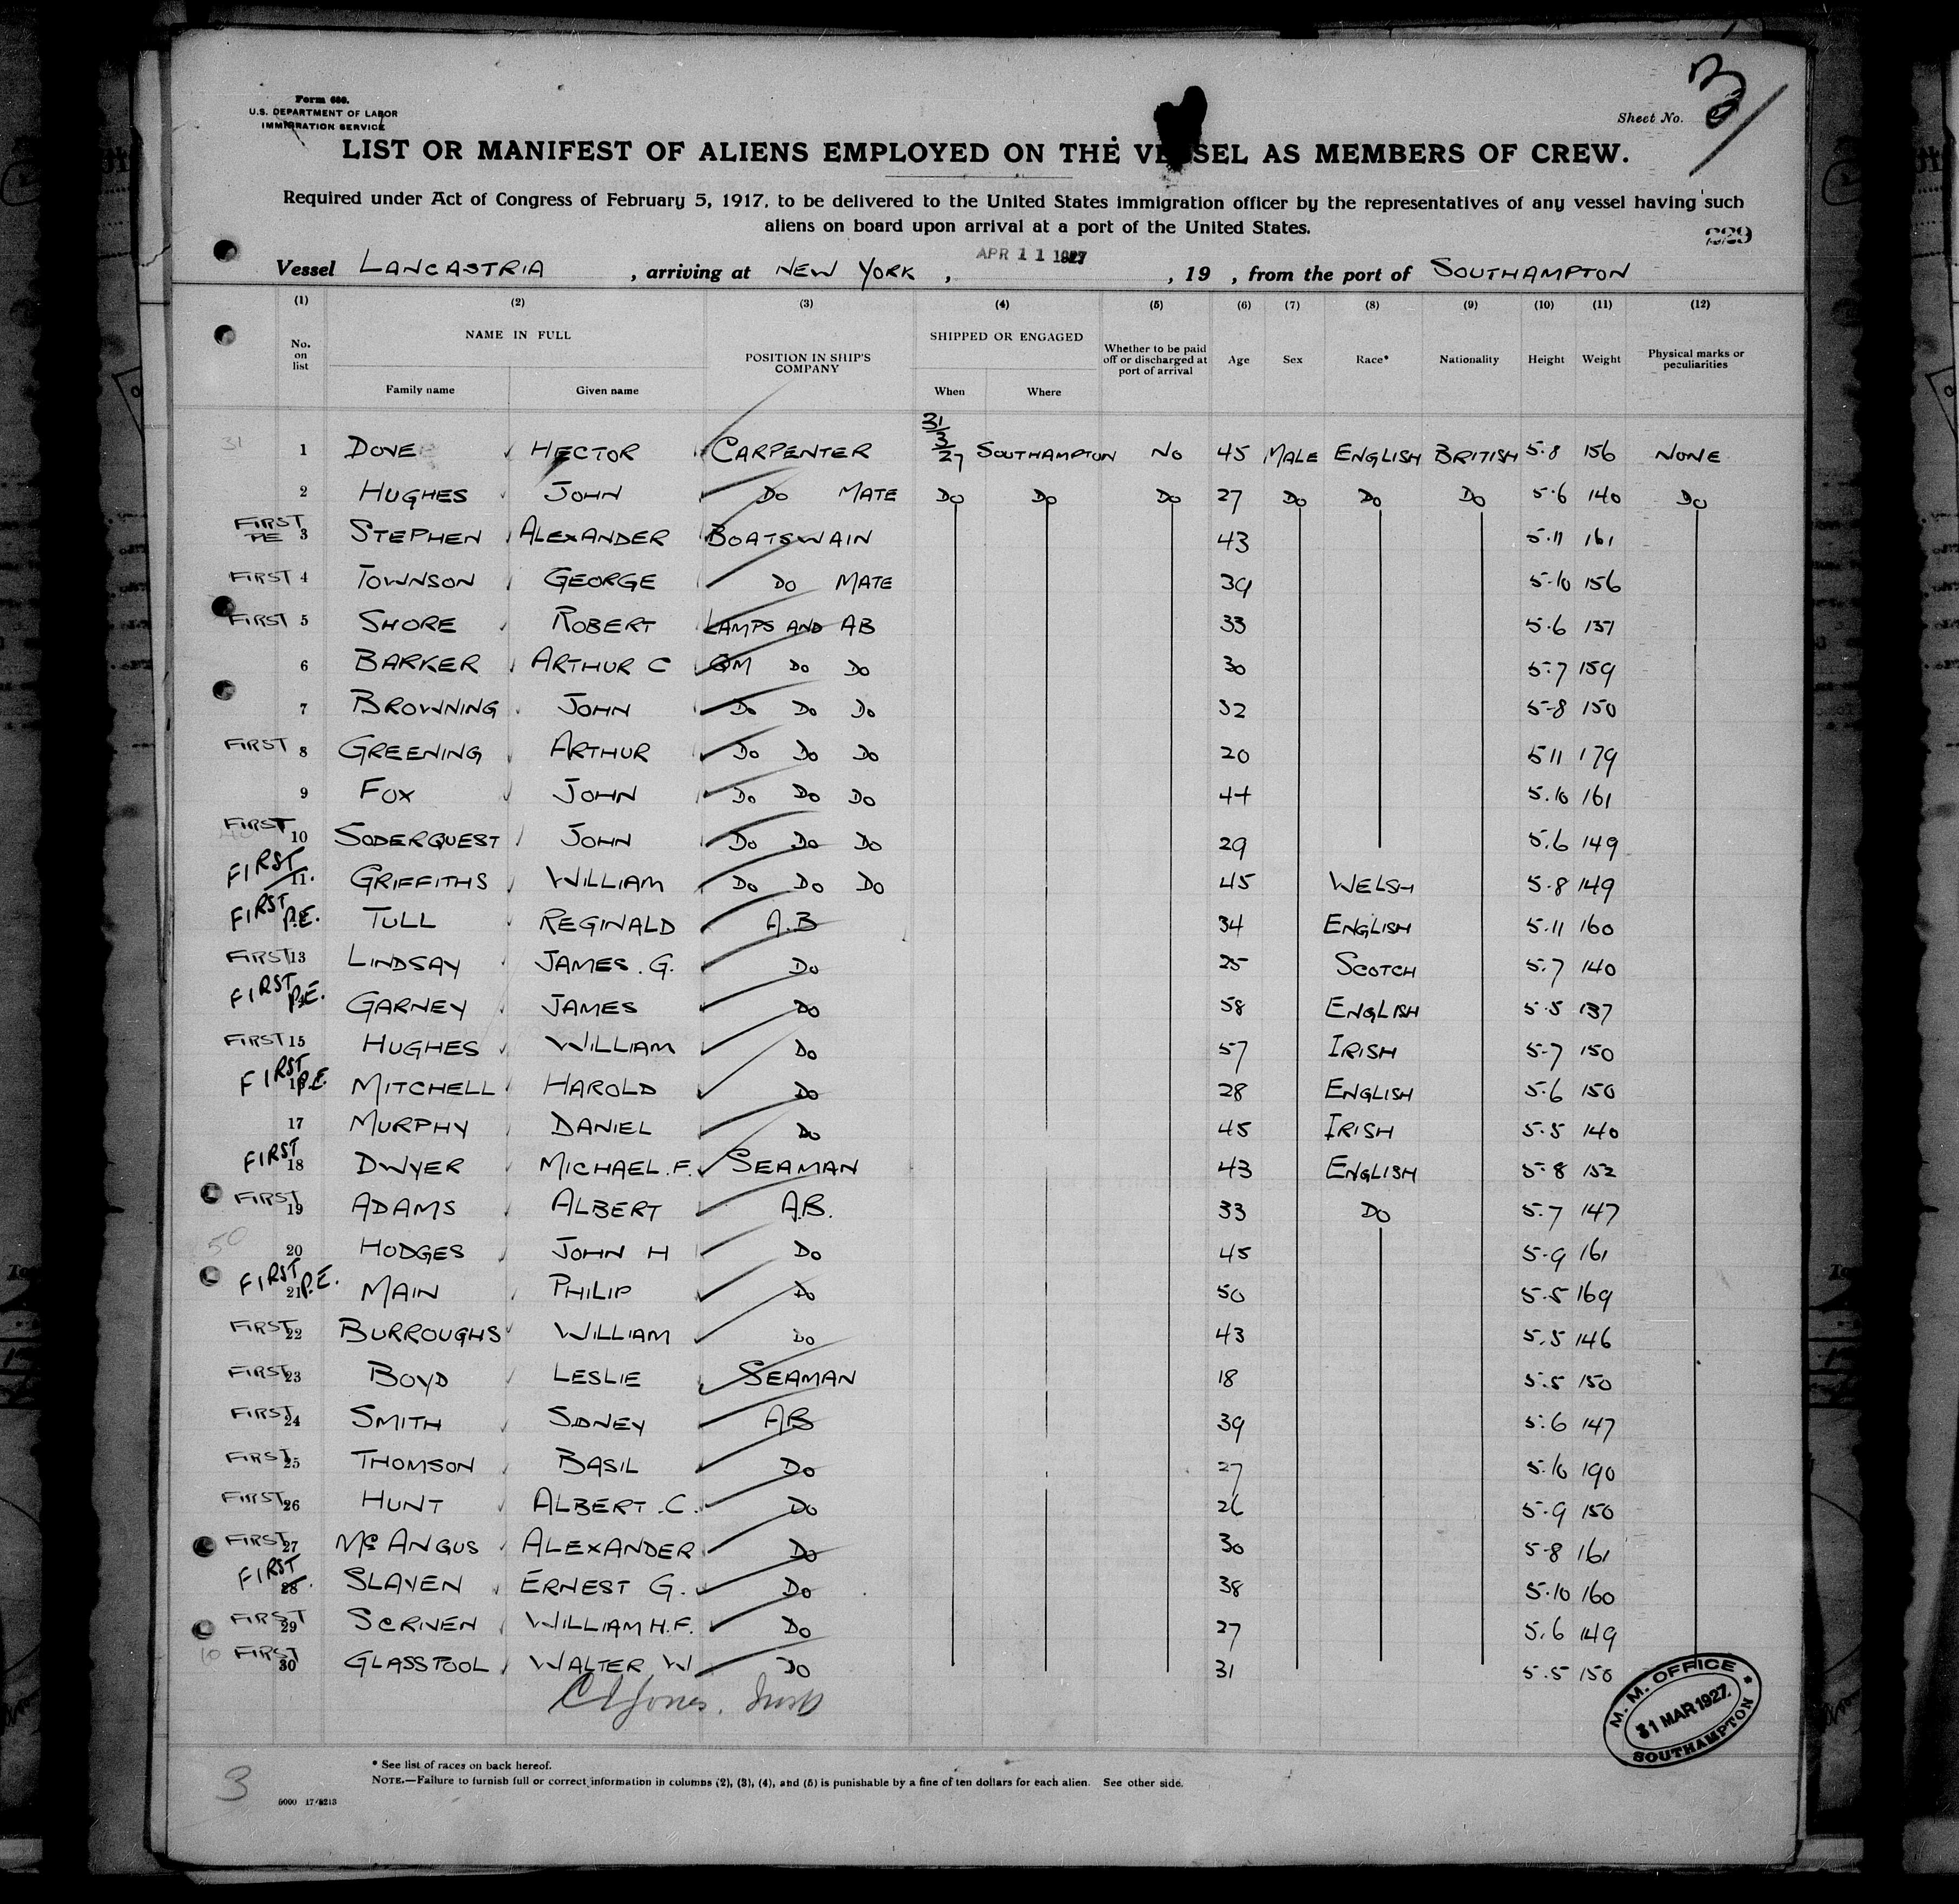 Form 680.
U.S. DEPARTMENT OF LABOR
IMMIGRATION SERVICE
Sheet No. 3
LIST OR MANIFEST OF ALIENS EMPLOYED ON THE VESSEL AS MEMBERS OF CREW.
Required under Act of Congress of February 5, 1917, to be delivered to the United States immigration officer by the representatives of any vessel having such
aliens on board upon arrival at a port of the United States.
229
Vessel LANCASTRIA, arriving at NEW YORK, APR 11 1927, 19 , from the port of SOUTHAMPTON
(1) (2) (3) (4) (5) (6) (7) (8) (9) (10) (11) (12)
No. on list NAME IN FULL POSITION IN SHIP'S COMPANY SHIPPED OR ENGAGED Whether to be paid off or discharged at port of arrival Age Sex Race* Nationality Height Weight Physical marks or peculiarities
Family name Given name When Where
31 1 DOVE HECTOR CARPENTER 31/3/27 SOUTHAMPTON NO 45 MALE ENGLISH BRITISH 5.8 156 NONE
2 HUGHES JOHN DO MATE DO DO DO 27 DO DO DO 5.6 140 DO
FIRST PE 3 STEPHEN ALEXANDER BOATSWAIN 43 5.11 161
FIRST 4 TOWNSON GEORGE DO MATE 39 5.10 156
FIRST 5 SHORE ROBERT LAMPS AND AB 33 5.6 137
6 BARKER ARTHUR C QM DO DO 30 5.7 159
7 BROWNING JOHN DO DO DO 32 5-8 150
FIRST 8 GREENING ARTHUR DO DO DO 20 5 11 179
9 FOX JOHN DO DO DO 44 5.10 161
FIRST 10 SODERQUEST JOHN DO DO DO 29 5.6 149
FIRST 11. GRIFFITHS WILLIAM DO DO DO 45 WELSH 5.8 149
FIRST P.E. TULL REGINALD A.B 34 ENGLISH 5.11 160
FIRST 13 LINDSAY JAMES.G. DO 25 SCOTCH 5.7 140
FIRST P.E. GARNEY JAMES DO 58 ENGLISH 5.5 137
FIRST 15 HUGHES WILLIAM DO 57 IRISH 5-7 150
FIRST P.E. MITCHELL HAROLD DO 28 ENGLISH 5.6 150
17 MURPHY DANIEL DO 45 IRISH 5.5 140
FIRST 18 DWYER MICHAEL.F. SEAMAN 43 ENGLISH 5.8 152
FIRST 19 ADAMS ALBERT A.B. 33 DO 5.7 147
50 20 HODGES JOHN H DO 45 5-9 161
FIRST P.E. 21 MAIN PHILIP DO 50 5.5 169
FIRST 22 BURROUGHS WILLIAM DO 43 5.5 146
FIRST 23 BOYD LESLIE SEAMAN 18 5.5 150
FIRST 24 SMITH SIDNEY AB 39 5.6 147
FIRST 25 THOMSON BASIL DO 27 5.10 190
FIRST 26 HUNT ALBERT.C. DO 26 5-9 150
FIRST 27 McANGUS ALEXANDER DO 30 5-8 161
FIRST 28. SLAVEN ERNEST G. DO 38 5.10 160
FIRST 29 SCRIVEN WILLIAM H.F. DO 27 5.6 149
10 FIRST 30 GLASSPOOL WALTER W DO 31 5.5 150
Jones.
M. M. OFFICE
31 MAR 1927
SOUTHAMPTON
* See list of races on back hereof.
NOTE.—Failure to furnish full or correct information in columns (2), (3), (4), and (5) is punishable by a fine of ten dollars for each alien. See other side.
3